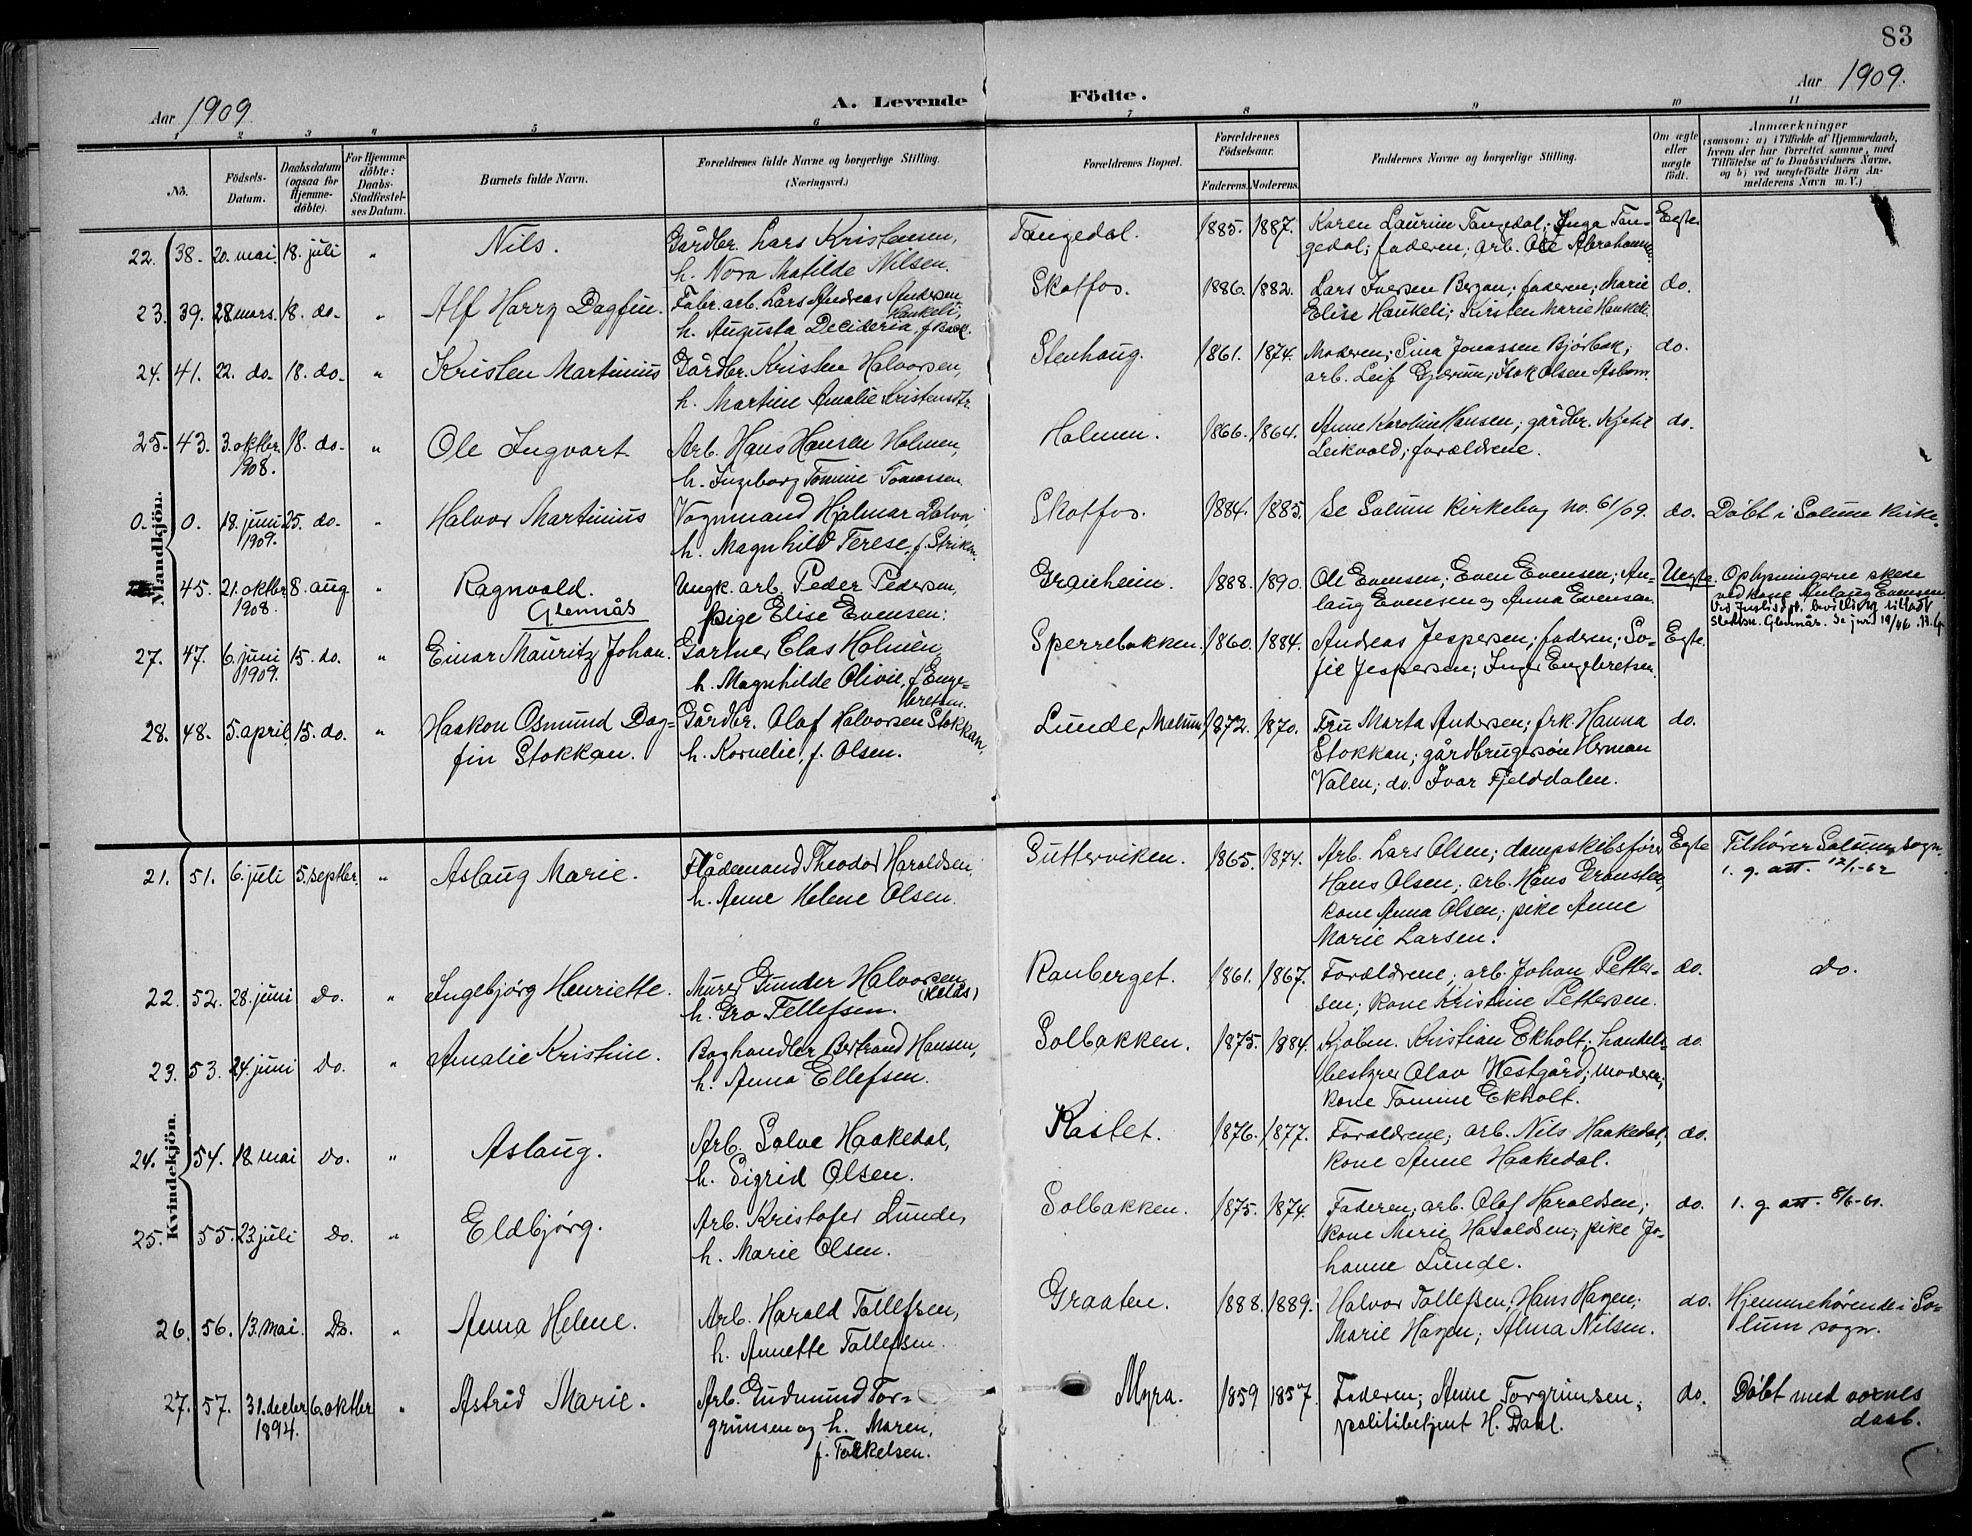 83
Aar 1909
A. Levende Födte.
Aar 1909.
1 2 3 4 5 6 7 8 9 10 11
No.
Födsels-Datum.
Daabsdatum (ogsaa for Hjemme-döbte).
For Hjemme-döbte: Daabs-Stadfæstel-ses Datum.
Barnets fulde Navn.
Forældrenes fulde Navne og borgerlige Stilling.
(Næringsvei.)
Forældrenes Bopæl.
Forældrenes Födselsaar.
Faderens. Moderens.
Faddernes Navne og borgerlige Stilling.
Om ægte eller uægte födt.
Anmærkninger
(saasom: a) i Tilfælde af Hjemmedaab,
hvem der har forrettet samme, med
Tilföielse af to Daabsvidners Navne,
og b) ved uægtefödte Börn An-
melderens Navn m. V.)
Mandkjön.
22. 38. 20. mai. 18. juli " Nils. Gårdbr. Lars Kristensen, Tangedal. 1885. 1887. Karen Laurine Tangedal; Inga Tan- Egte
h. Nora Matilde Nilsen. gedal; faderen; arb. Ole Abrahamsen
23. 39. 28 mars. 18. do. " Alf Harry Dagfin. Fabr. arb. Lars Andreas Andersen Haukeli, Skotfos. 1886. 1882. Lars Iversen Bergan; faderen; Marie do.
h. Augusta Decideria, f. Elise Haukeli; Kirsten Marie Haukeli.
24. 41. 22. do. 18. do. " Kristen Martinius Gårdbr. Kristen Halvorsen, Stenhaug. 1861. 1874. Moderen; Sina Jonassen Bjørbæk; do.
h. Martine Amalie Kristensdtr. arb. Leif Gjerum; Isak Olsen
25. 43. 3. oktbr. 18. do. " Ole Ingvart Arb. Hans Hansen Holmen, Holmen. 1866. 1864. Anne Karoline Hansen; gårdbr. Kjetil do.
1908. h. Ingeborg Tomine Tomassen Leikvold; forældrene.
0. 0. 18. juni 25. do. " Halvor Martinius Vognmand Hjalmar Dolva, Skotfos. 1884. 1885. Se Solum kirkebog no. 61/09. do. Døbt i Solum kirke.
1909. h. Magnhild Terese, f.
45. 21. oktbr 8. aug " Ragnvald. Ungk. arb. Peder Pedersen, Graneheim. 1888. 1890. Ole Evensen; Even Evensen; As- Uegte. Oplysningerne skede
1908. Glennås pige Elise Evensen: laug Evensen og Anna Evensen ved kone Aslaug Evensen.
Ved Justisdpt. bevilling tillatt
slektsn. Glennås. Se jnr 19/46
27. 47. 6. juni 15. do. " Einar Mauritz Johan. Gartner Clas Holmén, Sperrebakken. 1860. 1884. Andreas Jespersen; faderen; So- Egte.
1909. h. Magnhilde Olivie, f. Enge- fie Jespersen; Inger Engebretsen.
bretsen.
28. 48. 5. april 15. do. " Haakon Osmund Dag- Gårdbr. Olaf Halvorsen Stokkan, Lunde, Melum 1872. 1870. Fru Marta Andersen; frk. Hanna do.
fin Stokkan. h. Kornelie, f. Olsen. Stokkan; gårdbrugersøn Herman
Valen; do. Ivar Fjelddalen.
Kvindekjön.
21. 51. 6. juli 5. septbr. " Aslaug Marie. Flådemand Theodor Haroldsen, Gutterviken. 1865. 1874. Arb. Lars Olsen; dampskibsfører Egte Tilhører Solum sogn.
h. Anne Helene Olsen. Hans Olsen; arb. Hans Gransten; 1. g. att. 12/1-62
kone Anna Olsen; pike Anne
Marie Larsen.
22. 52. 28. juni Do. " Ingebjørg Henriette. Murer Gunder Halvorsen Ranberget. 1861. 1867. Forældrene; arb. Johan Petter- do. do.
h. Gro Tellefsen. sen; kone Kristine Pettersen.
23. 53. 24. juni Do. " Amalie Kristine. Boghandler Bertrand Hansen, Solbakken. 1875. 1884. Kjøbm. Kristian Ekholt; handels- do.
h. Anna Ellefsen. bestyrer Olav Westgård; moderen;
kone Tomine Ekholt.
24. 54. 18. mai Do. " Aslaug. Arb. Salve Haakedal, Kastet. 1876. 1877. Forældrene; arb. Nils Haakedal; do.
h. Sigrid Olsen. kone Anne Haakedal.
25. 55. 23 juli Do. " Eldbjørg. Arb. Kristofer Lunde, Solbakken. 1875. 1874. Faderen; arb. Olaf Haroldsen; do. 1. g. att. 8/6-61.
h. Marie Olsen. kone Marie Haroldsen; pike Jo-
hanne Lunde.
26. 56. 13. mai Do. " Anna Helene. Arb. Harald Tollefsen, Graaten. 1888. 1889. Halvor Tollefsen; Hans Hagen; do. Hjemmehørende i So-
h. Annette Tollefsen. Marie Hagen; Alma Nilsen. lum sogn.
27. 57. 31. decbr. 6. oktbr " Astrid Marie. Arb. Gudmund Tor- Myra. 1859 1857. Faderen; Anne Torgrimsen; do. Døbt med voxnes
1894. grimsen og h. Maren, politibetjent H. Dahl. daab.
f. Tollelsen.